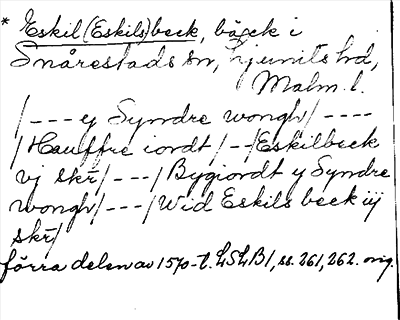 * Eskil (Eskils) beck, bäck i
Snårestads sn, Ljunits hd,
Malm. l.
/--- y Syndre wongh/----
/Hauffre iordt/--/Eskilbeck
vj skr̃/---/Bygiordt y Syndre
wongh/---/Wid Eskils beck iij
skr̃/
förra delen av 1570-t. LSLB1, ss. 261, 262. orig.